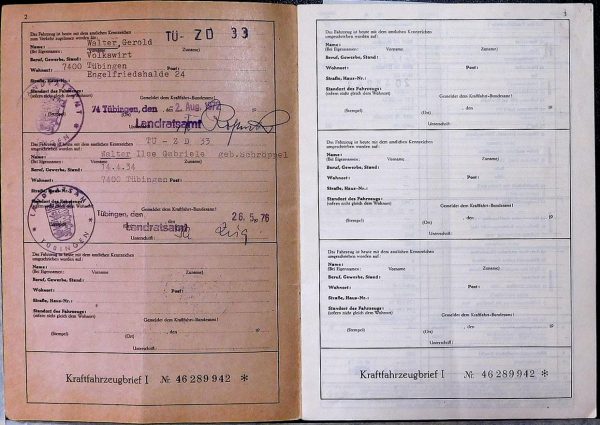 2
Das Fahrzeug ist heute mit dem amtlichen Kennzeichen
zum Verkehr zugelassen worden für:
TÜ- ZD 33
Name: Walter, Gerold
(Bei Eigennamen: Vorname Zuname)
Beruf, Gewerbe, Stand: Volkswirt
Wohnort: 7400 Tübingen Post:
Straße, Haus-Nr.: Engelfriedshalde 24
Standort des Fahrzeugs:
(sofern nicht gleich dem Wohnort)
Gemeldet dem Kraftfahrt-Bundesamt!
74 Tübingen, den 2. Aug. 1972
Landratsamt
Unterschrift:
LANDRATSAMT
TÜBINGEN
Das Fahrzeug ist heute mit dem amtlichen Kennzeichen TÜ - Z D 33
umgeschrieben worden auf:
Name: Walter Ilse Gabriele geb. Schröppel
(Bei Eigennamen: Vorname Zuname)
Beruf, Gewerbe, Stand: 74.4.34
Wohnort: 7400 Tübingen Post:
Straße, Haus-Nr.:
Standort des Fahrzeugs:
(sofern nicht gleich dem Wohnort)
Gemeldet dem Kraftfahrt-Bundesamt!
Tübingen, den 26.5.76
Landratsamt
Unterschrift:
LANDRATSAMT
TÜBINGEN
Das Fahrzeug ist heute mit dem amtlichen Kennzeichen
umgeschrieben worden auf:
Name:
(Bei Eigennamen: Vorname Zuname)
Beruf, Gewerbe, Stand:
Wohnort: Post:
Straße, Haus-Nr.:
Standort des Fahrzeugs:
(sofern nicht gleich dem Wohnort)
Gemeldet dem Kraftfahrt-Bundesamt!
, den 19
(Stempel) (Ort)
Unterschrift:
Kraftfahrzeugbrief I Nr. 46 289 942 *
3
Das Fahrzeug ist heute mit dem amtlichen Kennzeichen
umgeschrieben worden auf:
Name:
(Bei Eigennamen: Vorname Zuname)
Beruf, Gewerbe, Stand:
Wohnort: Post:
Straße, Haus-Nr.:
Standort des Fahrzeugs:
(sofern nicht gleich dem Wohnort)
Gemeldet dem Kraftfahrt-Bundesamt!
, den 19
(Stempel) (Ort)
Unterschrift:
Das Fahrzeug ist heute mit dem amtlichen Kennzeichen
umgeschrieben worden auf:
Name:
(Bei Eigennamen: Vorname Zuname)
Beruf, Gewerbe, Stand:
Wohnort: Post:
Straße, Haus-Nr.:
Standort des Fahrzeugs:
(sofern nicht gleich dem Wohnort)
Gemeldet dem Kraftfahrt-Bundesamt!
, den 19
(Stempel) (Ort)
Unterschrift:
Das Fahrzeug ist heute mit dem amtlichen Kennzeichen
umgeschrieben worden auf:
Name:
(Bei Eigennamen: Vorname Zuname)
Beruf, Gewerbe, Stand:
Wohnort: Post:
Straße, Haus-Nr.:
Standort des Fahrzeugs:
(sofern nicht gleich dem Wohnort)
Gemeldet dem Kraftfahrt-Bundesamt!
, den 19
(Stempel) (Ort)
Unterschrift:
Kraftfahrzeugbrief I Nr. 46 289 942 *